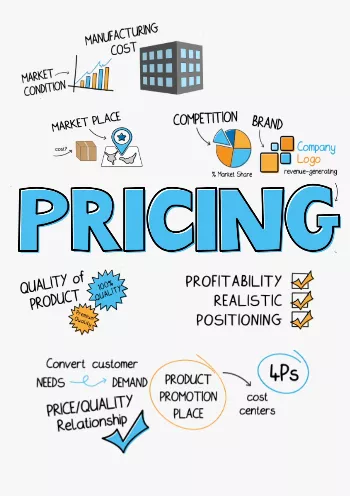 MANUFACTURING
COST
MARKET
CONDITION
MARKET PLACE
COST?
COMPETITION
% Market Share
BRAND
Company
Logo
revenue-generating
PRICING
QUALITY of
PRODUCT
100%
QUALITY
Premium
Quality
PROFITABILITY
REALISTIC
POSITIONING
Convert customer
NEEDS DEMAND
PRICE/QUALITY
Relationship
PRODUCT
PROMOTION
PLACE
4Ps
cost
centers